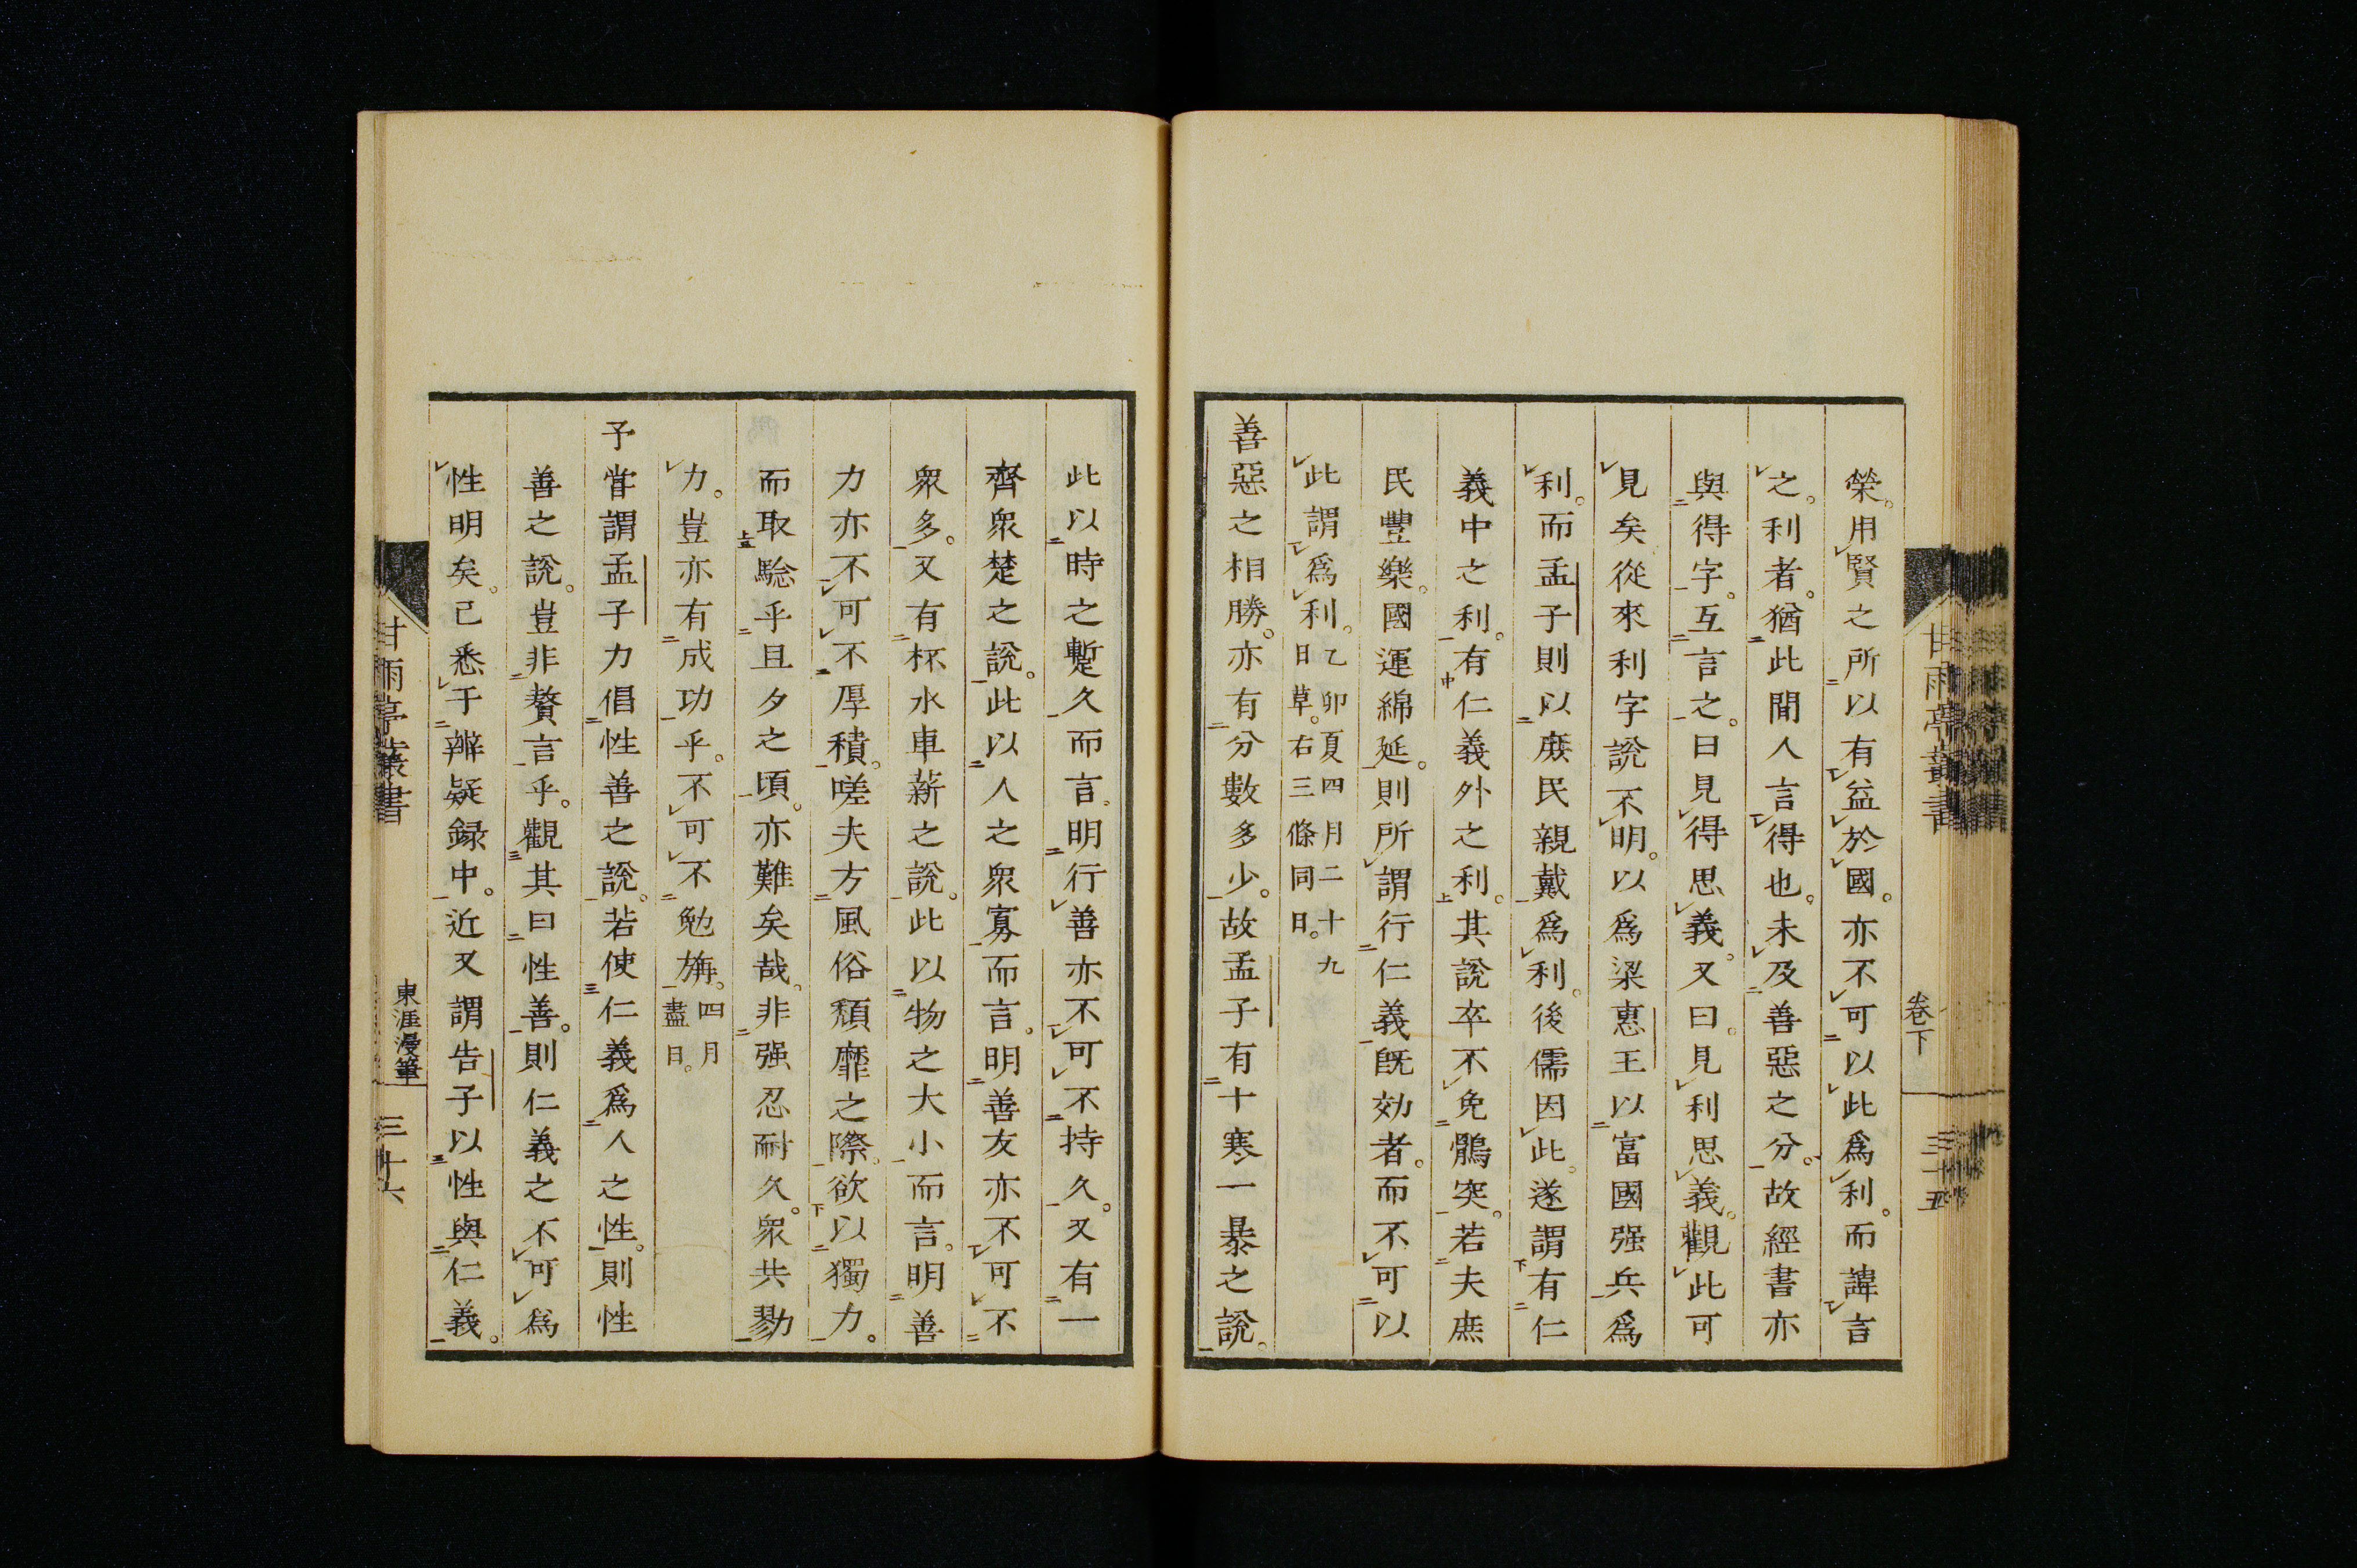 榮。用賢之所以有益於國。亦不可以此爲利。而諱言
之。利者。猶此間人言得也。未及善惡之分。故經書亦
與得字。互言之。曰見得思義。又曰。見利思義。觀此可
見矣從來利字說不明。以爲梁惠王以富國强兵爲
利。而孟子則以庶民親戴爲利。後儒因此。遂謂有仁
義中之利。有仁義外之利。其說卒不免鶻突。若夫庶
民豐樂。國運綿延。則所謂行仁義旣効者。而不可以
此謂爲利。乙卯夏四月二十九
日草。右三條同日。
善惡之相勝。亦有分數多少。故孟子有十寒一暴之說。
此以時之蹔久而言。明行善亦不可不持久。又有一
齊衆楚之說。此以人之衆寡而言。明善友亦不可不
衆多。又有杯水車薪之說。此以物之大小而言。明善
力亦不可不厚積。嗟夫方風俗頽靡之際。欲以獨力。
而取驗乎旦夕之頃。亦難矣哉。非强忍耐久。衆共勠
力。豈亦有成功乎。不可不勉旃。四月
盡日。
予嘗謂孟子力倡性善之說。若使仁義爲人之性。則性
善之說。豈非贅言乎。觀其曰性善。則仁義之不可爲
性明矣。已悉于辨疑録中。近又謂告子以性與仁義。
甘雨亭叢書
卷下
三十五
甘雨亭叢書
東涯漫筆
三十六